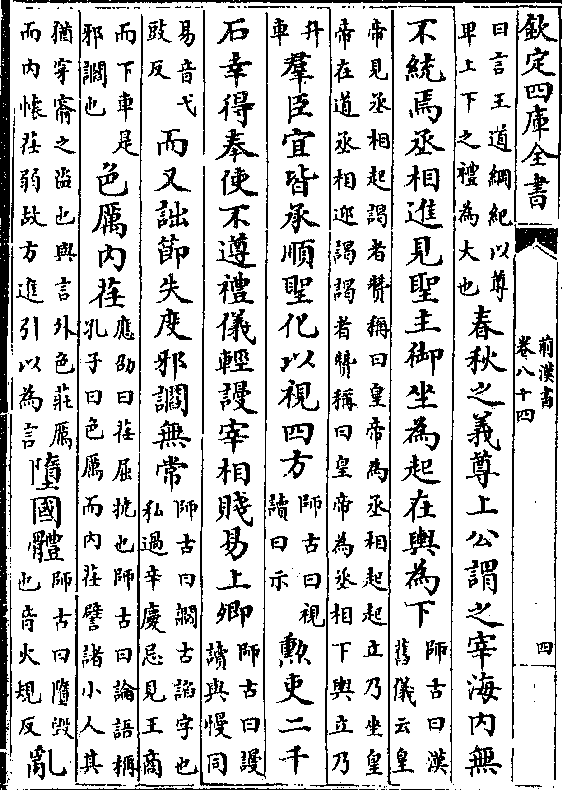 欽定四庫全書
前漢書
卷八十四
四
曰言王道綱紀以尊
卑上下之禮為大也
春秋之義尊上公謂之宰海内無
不統焉丞相進見聖主御坐為起在輿為下
師古曰漢
舊儀云皇
帝見丞相起謁者贊稱曰皇帝為丞相起起立乃坐皇
帝在道丞相迎謁謁者贊稱曰皇帝為丞相下輿立乃
升
車
羣臣宜皆承順聖化以視四方
師古曰視
讀曰示
勲吏二千
石幸得奉使不遵禮儀輕謾宰相賤易上卿
師古曰謾
讀與慢同
易音弋
豉反
而又詘節失度邪讇無常
師古曰讇古諂字也
私過辛慶忌見王商
而下車是
邪讇也
色厲内荏
應劭曰荏屈撓也師古曰論語稱
孔子曰色厲而内荏譬諸小人其
猶穿窬之盜也與言外色莊厲
而内懷荏弱故方進引以為言
墮國體
師古曰墮毀
也音火規反
亂